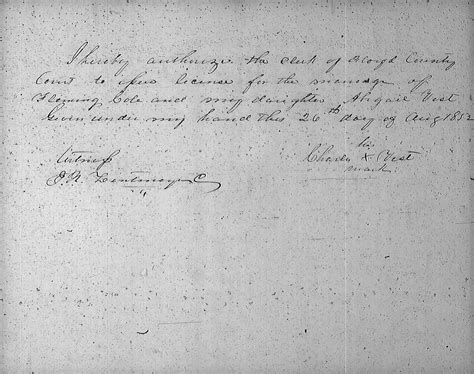 I hereby authorize the clerk of Floyd County
Court to issue license for the marriage of
Fleming Cole and my daughter Abigail Vest
Given under my hand this 26th day of Aug 185
Witness
his
Charles X Vest
mark